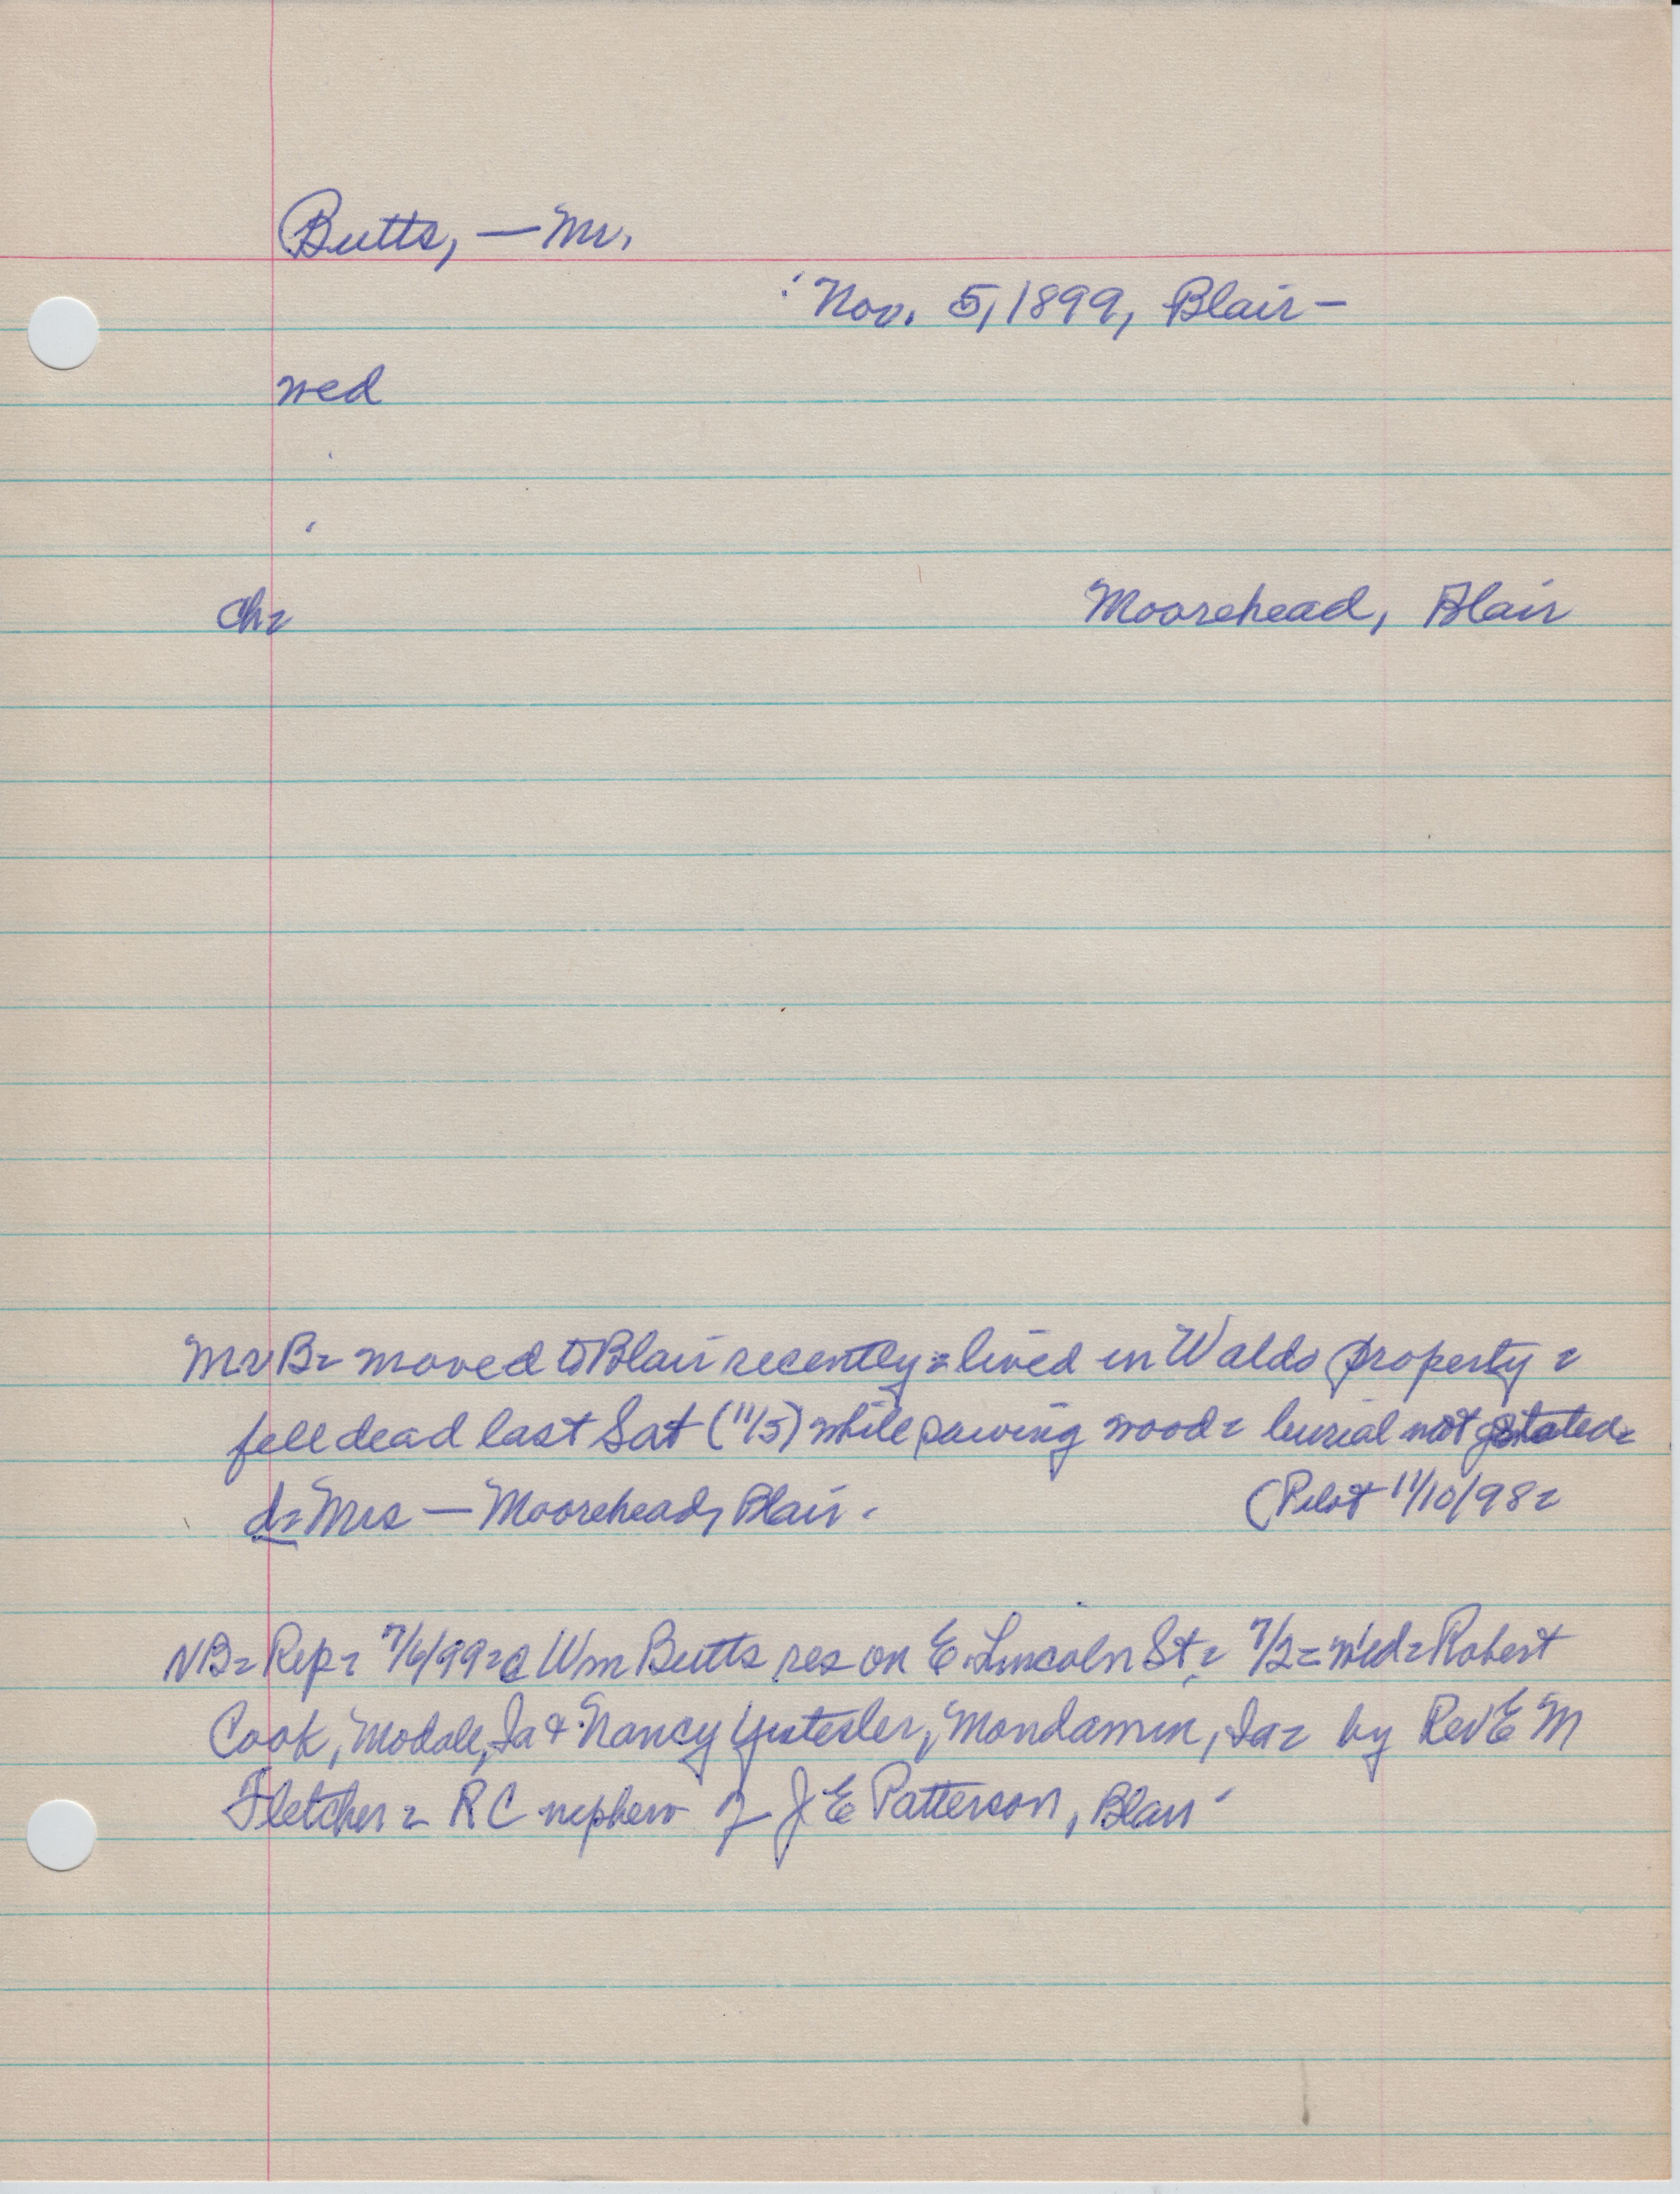 Butts, — Mr.
Nov. 5, 1899, Blair —
wed
ch=
Moorehead, Blair
Mr B= moved to Blair recently = lived in Waldo property =
fell dead last Sat (11/5) while sawing wood = burial not stated =
d= Mrs — Moorehead, Blair.
(Pilot 11/10/98 =
NB = Rep = 7/6/99 = @ Wm Butts res on E. Lincoln St = 7/2 = wed = Robert
Cook, Modale, Ia & Nancy Mondamin, Ia = by Rev E M
Fletcher = R C nephew of J E Patterson, Blair